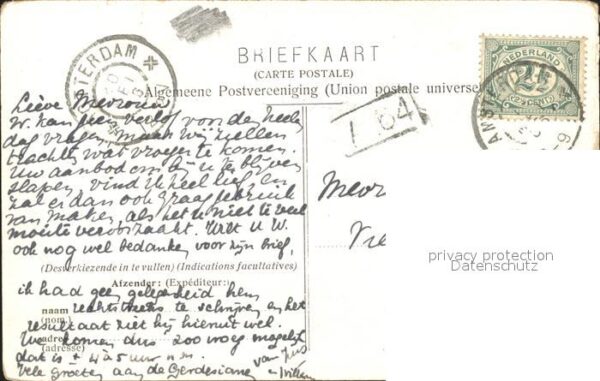 BRIEFKAART
(CARTE POSTALE)
Algemeene Postvereeniging (Union postale universelle)
NEDERLAND
2½
CENT
AMST
TERDAM
64
Lieve Mevrouw
W. kan geen verlof voor den heelen
dag vragen, maar wij zullen
trachten wat vroeger te komen.
Uw aanbod om bij u te blijven
slapen, vind ik heel lief, en
zal er dan ook graag gebruik
van maken, als het u niet te veel
moeite veroorzaakt. Wilt u W.
ook nog wel bedanken voor zijn brief,
(Desverkiezende in te vullen) (Indications facultatives)
Afzender: (Expéditeur:)
ik had geen gelegenheid hem
naam rechtstreeks te schrijven en het
(nom)
resultaat ziet hij hieruit wel.
We komen dus zoo vroeg mogelijk
adres
(adresse)
dat is ± 4 à 5 uur n.m.
vele groeten aan de
van
Mevr
privacy protection
Datenschutz